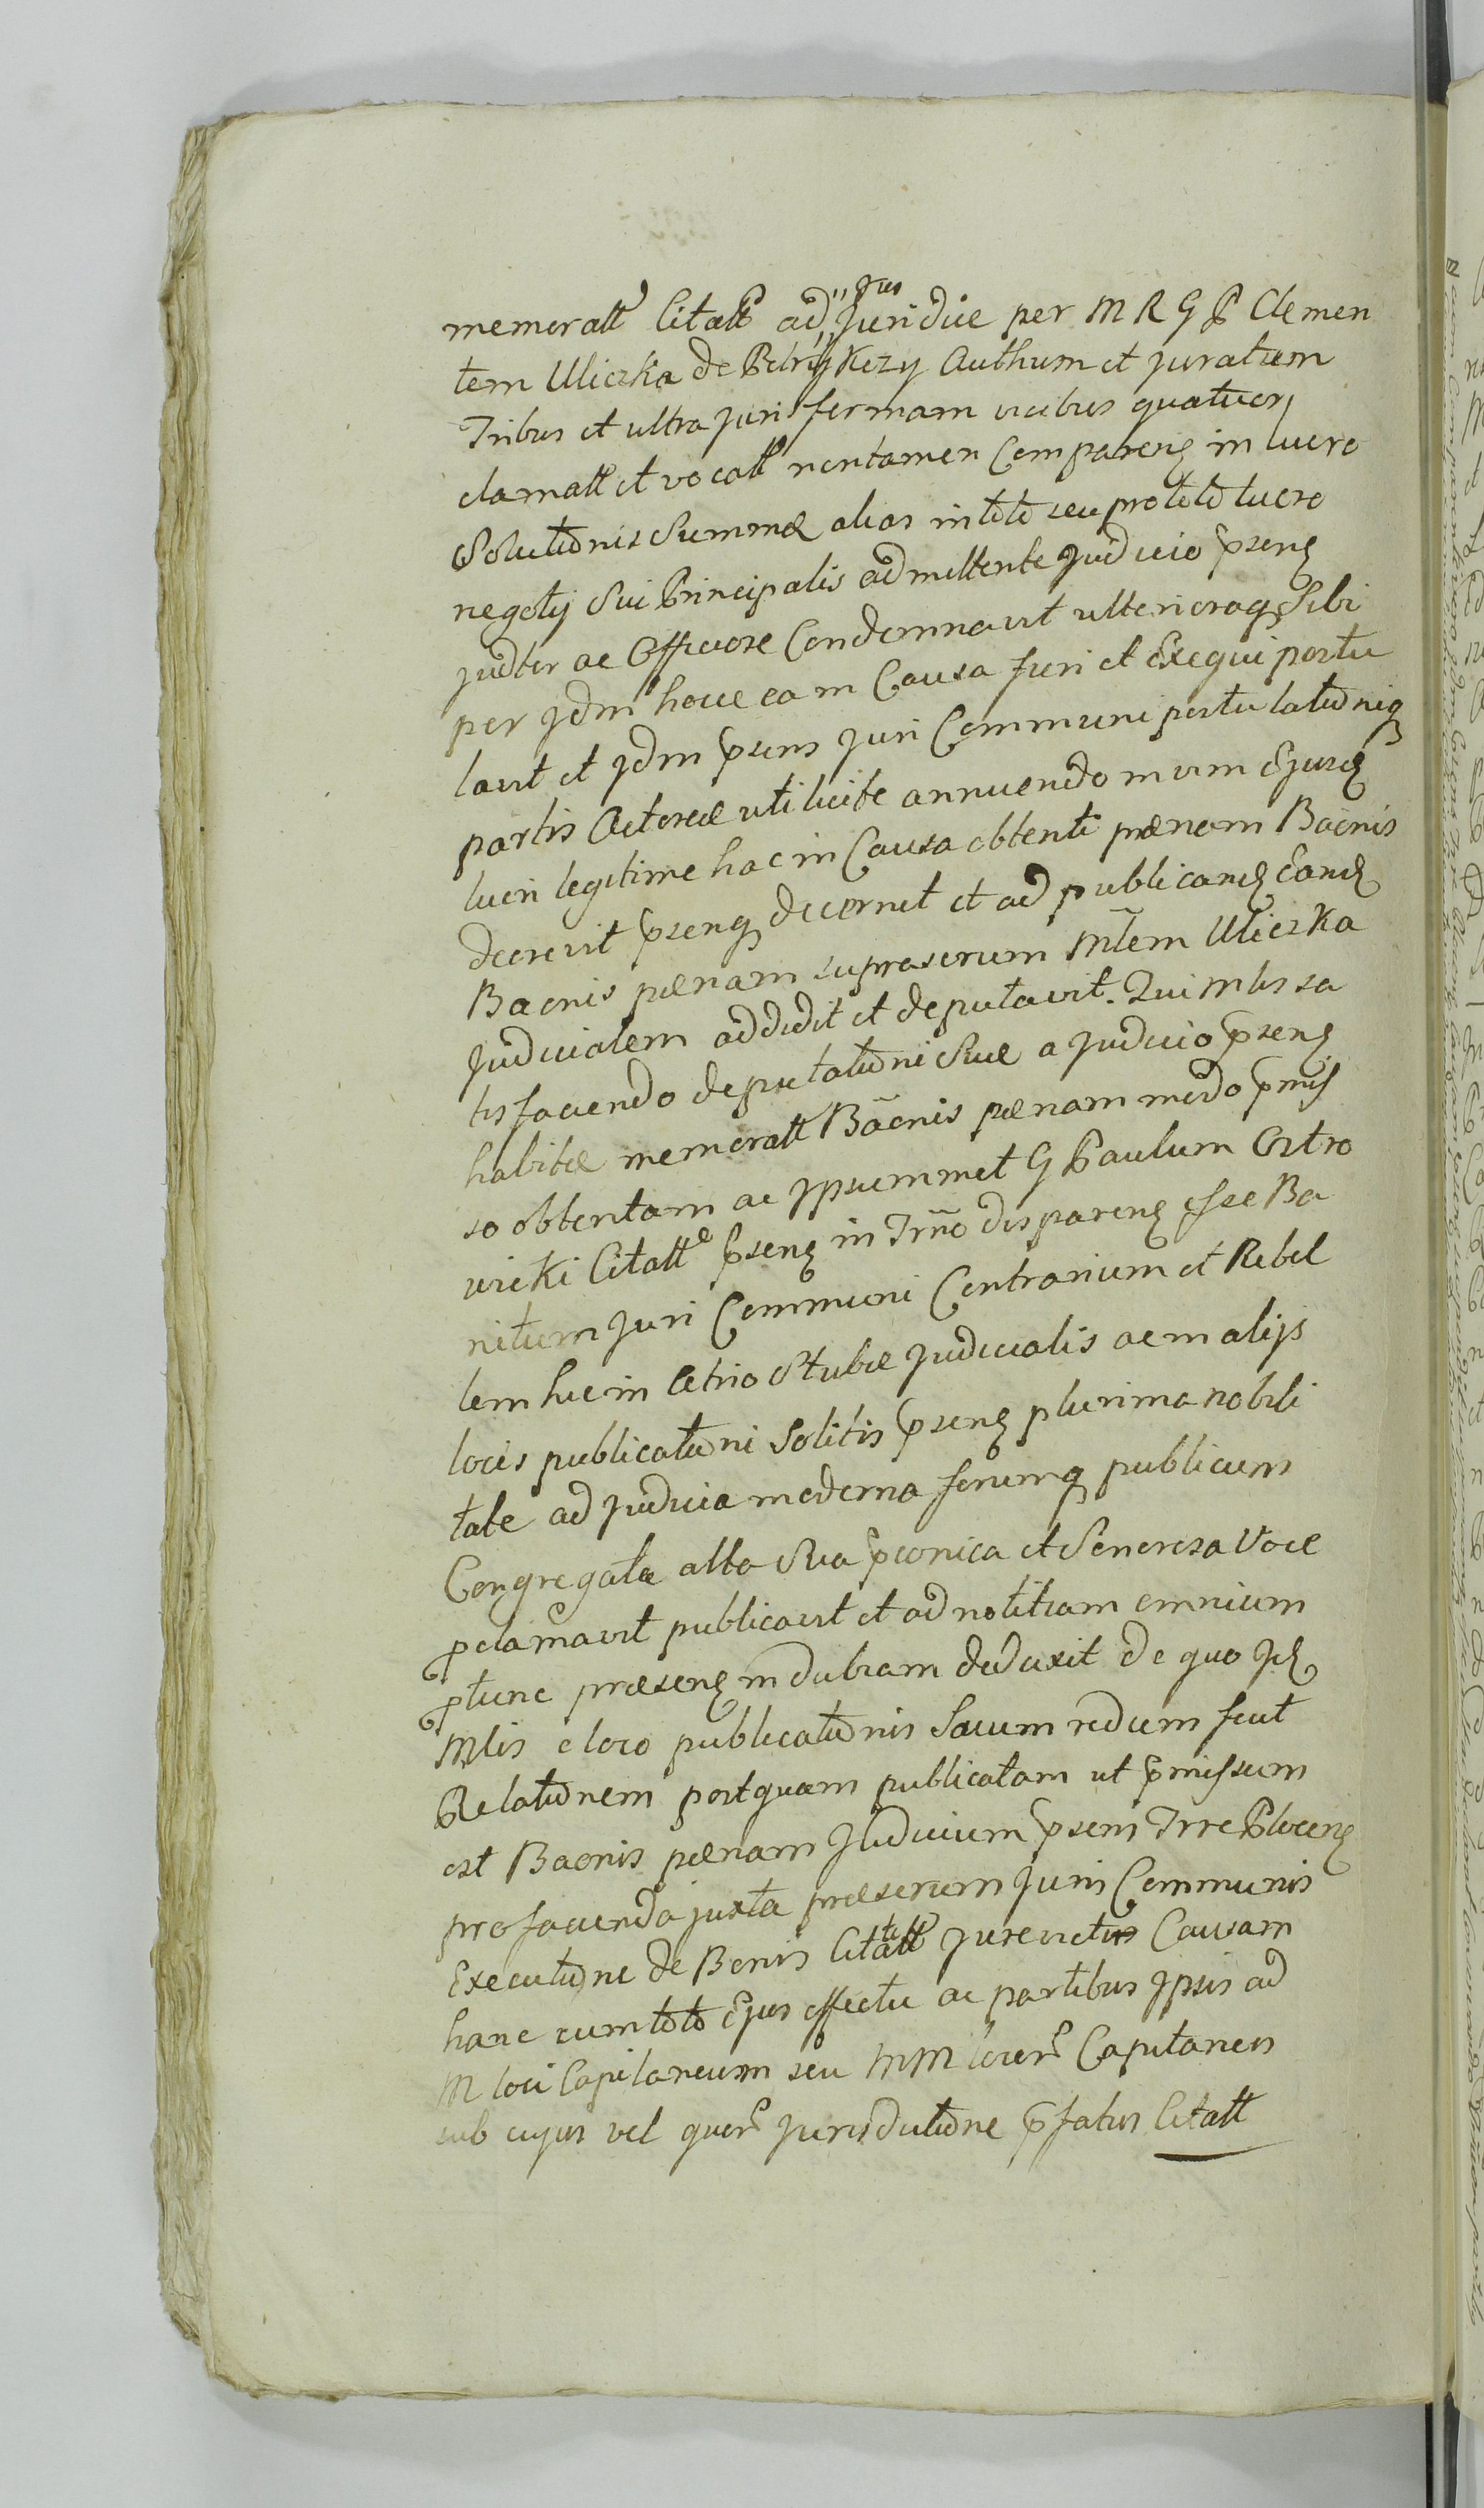 jus
memoratt Citatt ad juridice per M R G P Clemen
tem Uliczka de Petrykozy Authum et juratum
Tribus et ultra juris formam vicibus quatuor
clamatt et vocatt nontamen Comparenę in lucro
Solutōnis Summæ alias in toto seu pro toto lucro
negotij sui Principalis admittente Judicio pśenę
judter ac Officiose Condemnavit ulterioraq Sibi
per jdm hocce ea in Causa fieri et Exequi postu
lavit et jdm pśens juri Communi postulatōniq
partis Actoreæ uti licitæ annuendo in vim Ejusdę
lucri legitime hac in Causa obtenti pænam Baonis
decrevit pśenq decernit et ad publicandę Eandę
Baonis pænam suprascrum Mlem Uliczka
Judicialem addidit et deputavit. Qui Mlis sa
tisfaciendo deputatōni Suæ a judicio pśenę
habitæ memoratt Bāonis pænam modo pmis
so obtentam ac jpsummet G Paulum Ostro
wicki Citatt pśenę in Trño disparenę esse Ba
nitum juri Communi Contrarium et Rebel
lem hic in Atrio Stubæ judicialis ac in alijs
locis publicatōni Solitis pśenę plurima nobili
tate ad judicia moderna forumq publicum
Congregata alta Sua pconica et Sonorosa Voce
pclamavit publicavit et ad notitiam omnium
ptunc præsenę indubiam deduxit de quo Jdę
Mlis e loco publicatōnis Sacum rediens fecit
Relatōnem postquam publicatam ut pmissum
est Baonis pænam Judicium pśens Trre Plocenę
pro facienda juxta præscrum juris Communis
Executōne de Bonis Citatt jurevictus Causam
hanc cum toto Ejus effectu ac partibus jpsis ad
M loci Capitaneum seu MM locor Capitaneos
sub cujus vel quor jurisdictōne pfatus Citatt